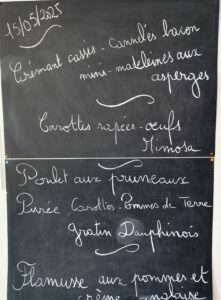 15/05/2025
Crémant cassis - Cannelés bacon
mini-madeleines aux
asperges
Carottes rapées - œufs
Mimosa
Poulet aux pruneaux
Purée Carottes - Pommes de Terre
Gratin Dauphinois
Flamusse aux pommes et
crème anglaise